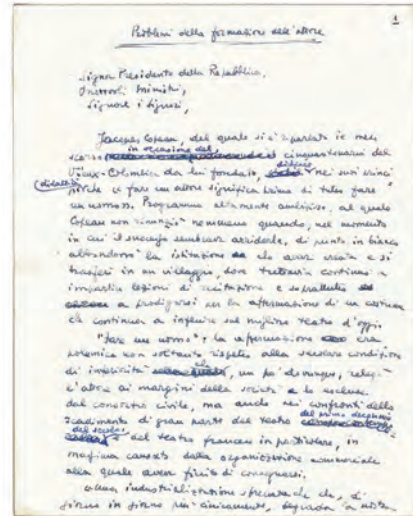 1
Problemi della formazione dell'attore
Signor Presidente della Repubblica,
Onorevoli Ministri,
Signore e Signori,
Jacques Copeau, del quale si è riparlato il mese
in occasione del
scorso cinquantenario del
Vieux-Colombier da lui fondato, nei suoi princi
(didattici)
che fare un attore significa prima di tutto fare
un uomo. Programma altamente ambizioso, al quale
Copeau non rinunziò nemmeno quando, nel momento
in cui il successo sembrava arridergli, di punto in bianco
abbandonò la istituzione che aveva creata e si
trasferì in un villaggio, dove tuttavia continuò a
impartire lezioni di recitazione e soprattutto
a prodigarsi per la affermazione di un costume
che continua a influire sul migliore teatro d'oggi.
"Fare un uomo": la affermazione era
polemica non soltanto rispetto alla secolare condizione
di che, un po' dovunque,
l'attore ai margini della società e lo escluse
dal consorzio civile, ma anche nei confronti dello
del primo decennio
scadimento di gran parte del teatro
del secolo
e del teatro francese in particolare, in
massima causato dalla organizzazione commerciale
alla quale aveva finito di consegnarsi.
industrializzazione sfrenata che, di
giorno in giorno più cinicamente, degrada